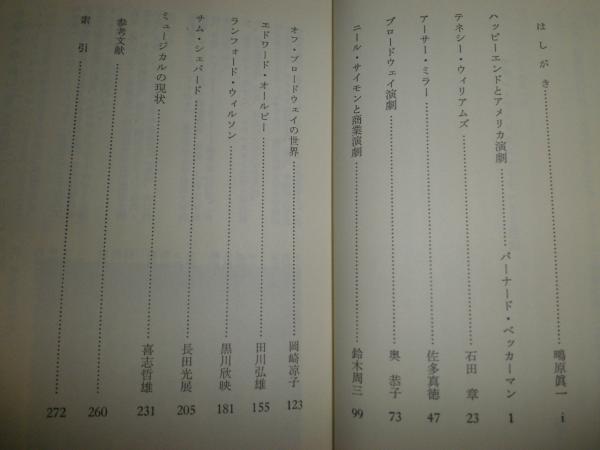 はしがき……鳴原眞一 i
ハッピーエンドとアメリカ演劇……バーナード・ベッカーマン 1
テネシー・ウィリアムズ……石田 章 23
アーサー・ミラー……佐多真徳 47
ブロードウェイ演劇……奥 恭子 73
ニール・サイモンと商業演劇……鈴木周三 99
オフ・ブロードウェイの世界……岡崎凉子 123
エドワード・オールビー……田川弘雄 155
ランフォード・ウィルソン……黒川欣映 181
サム・シェパード……長田光展 205
ミュージカルの現状……喜志哲雄 231
参考文献……260
索 引……272